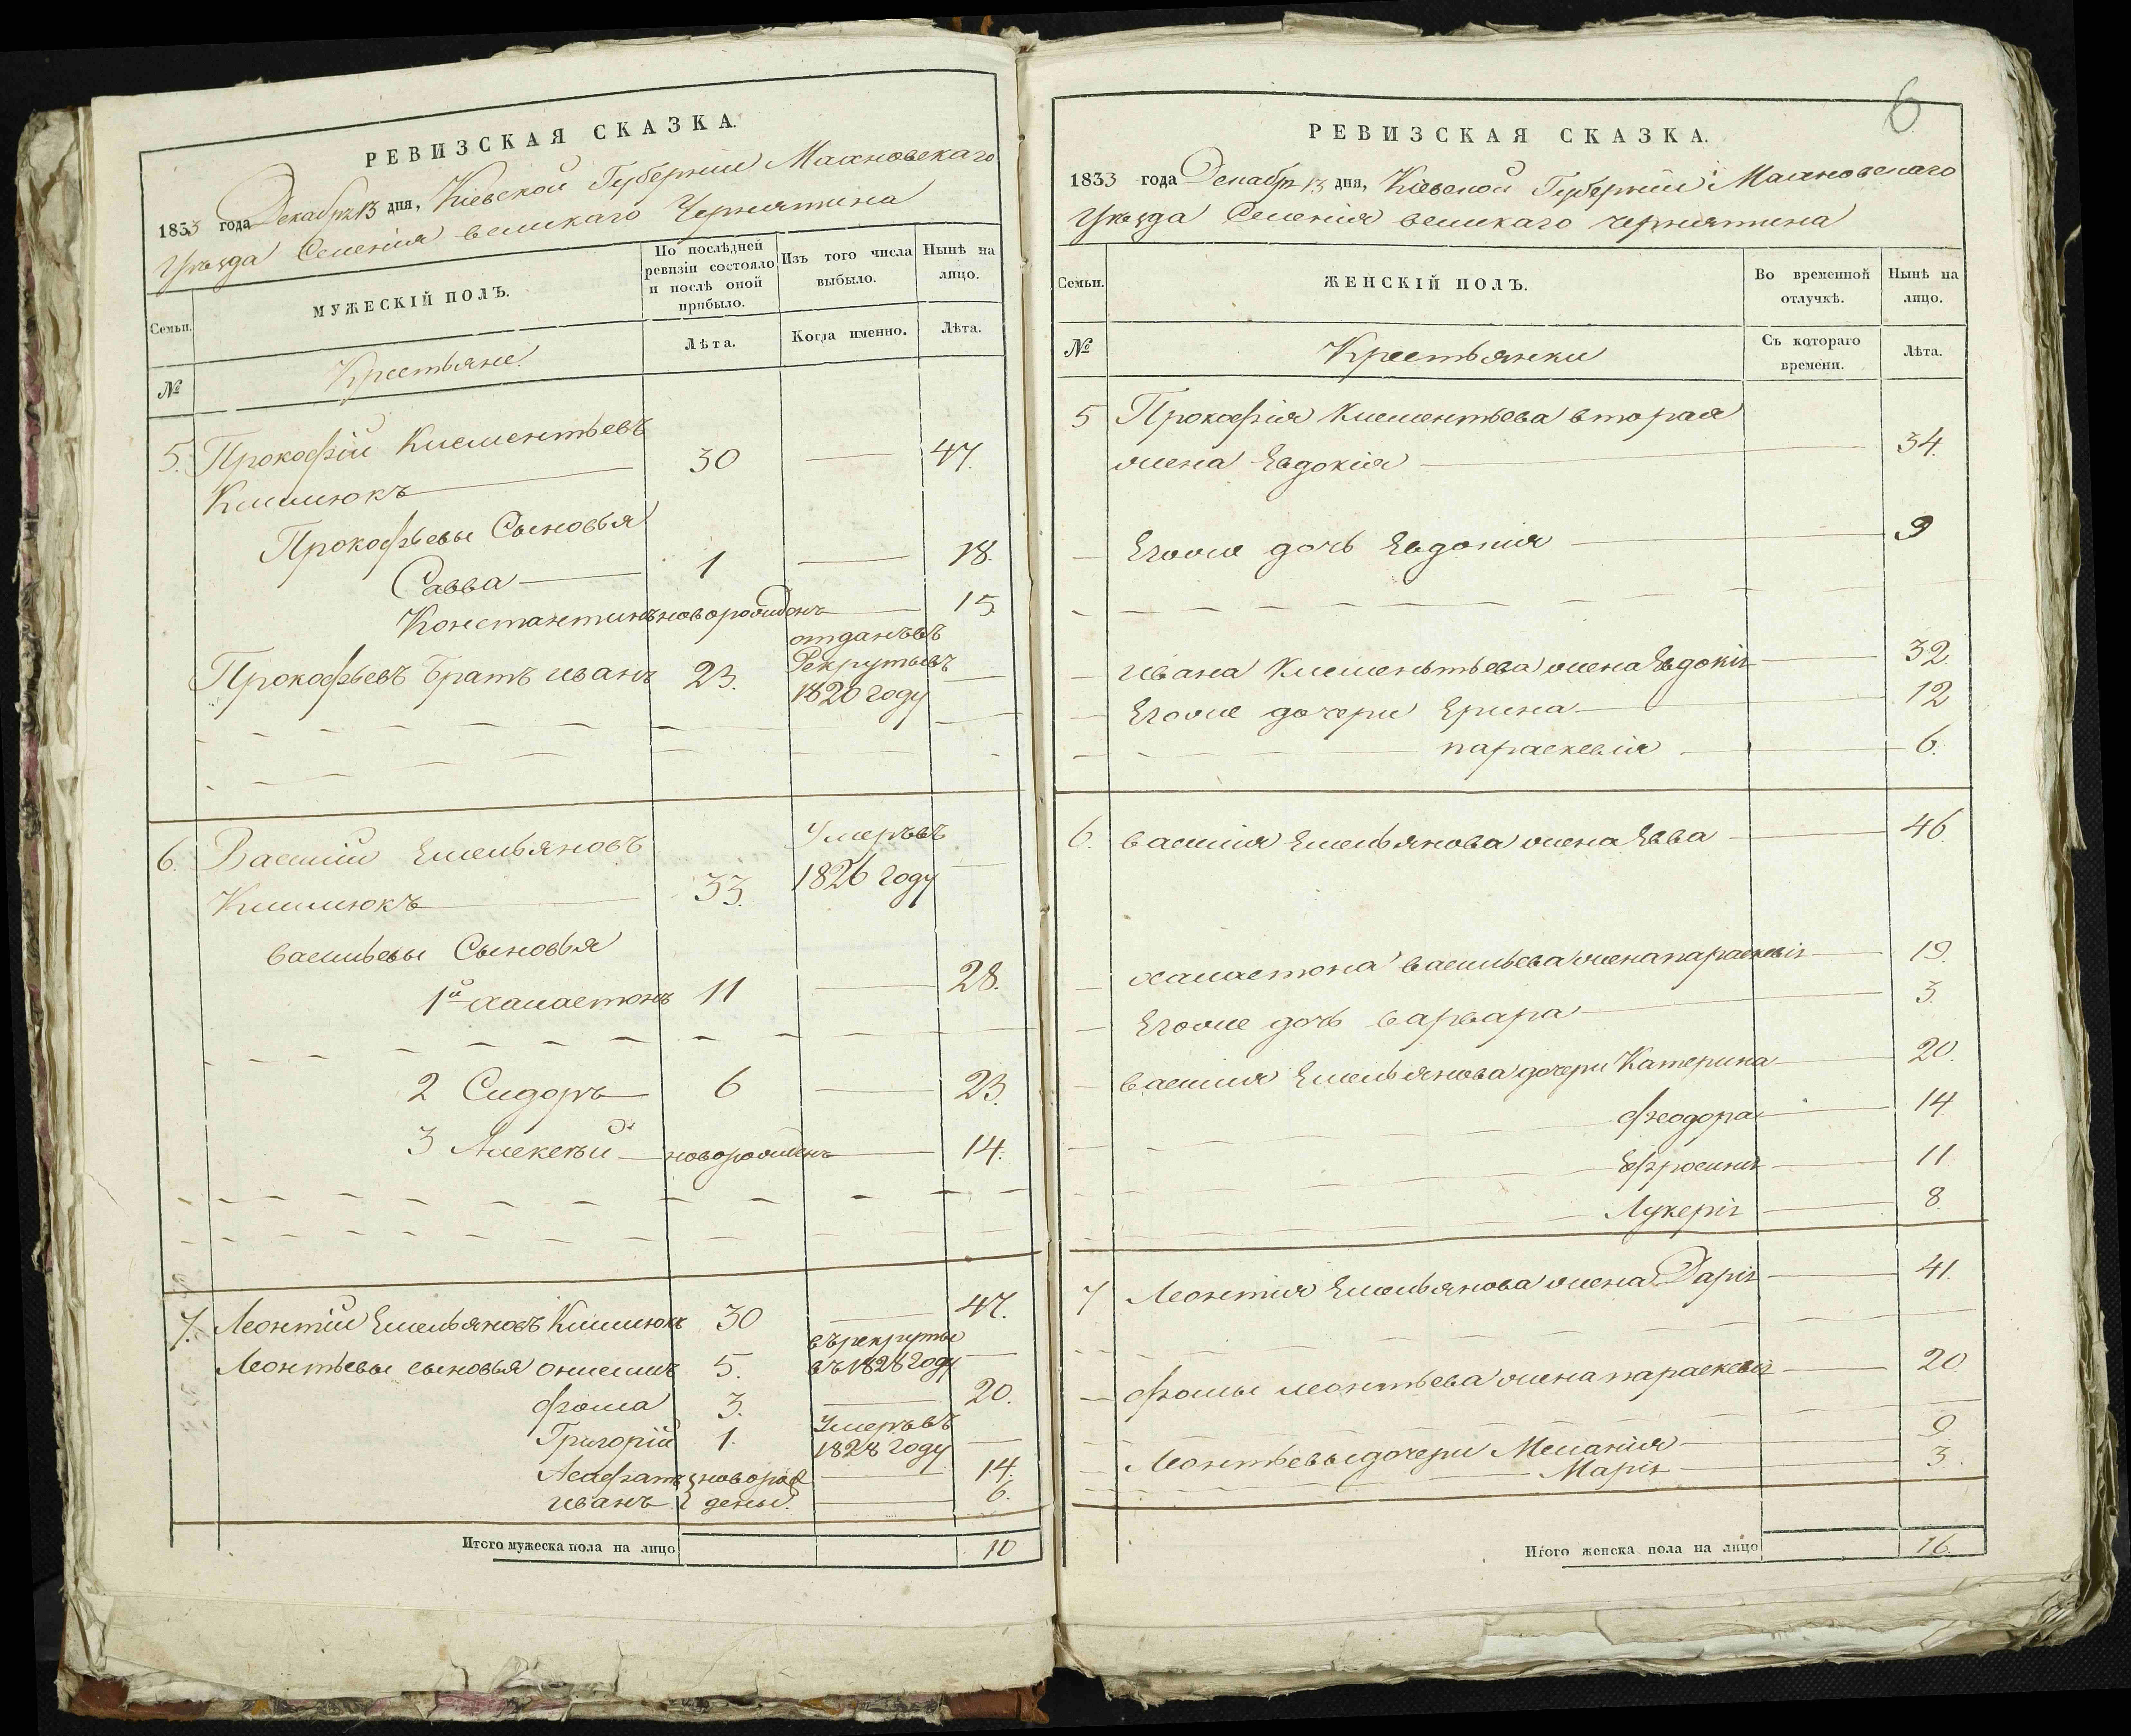 РЕВИЗСКАЯ СКАЗКА.
1833 года Декабря 13 дня, Кіевской Губерніи Махновскаго
Уѣзда Селенія великаго Чернятина
Семьи.
МУЖЕСКІЙ ПОЛЪ.
По послѣдней ревизіи состояло и послѣ оной прибыло.
Изъ того числа выбыло.
Нынѣ на лицо.
№
Крестьяне
Лѣта.
Когда именно.
Лѣта.
5. Прокофій Климентьевъ
Климюкъ 30 — 47.
Прокофьевы Сыновья
Савва 1 — 18.
Константинъ новорожденъ — 15
Прокофьевъ братъ иванъ 23. отданъ въ Рекруты въ 1820 году —
6. Василій Емельяновъ
Климюкъ 33. Умеръ въ 1826 году —
васильевы Сыновья
1й халастонъ 11 — 28.
2 Сидоръ 6 — 23.
3 Алексѣй новорожденъ — 14.
7. Леонтій Емельяновъ Климюкъ 30 — 47.
Леонтьевы сыновья онисимъ 5. въ рекруты въ 1828 году —
фома 3. — 20.
Григорій 1. Умеръ въ 1828 году —
Асафатъ новорож — 14.
иванъ дены. — 6.
Итого мужеска пола на лицо 10
6
РЕВИЗСКАЯ СКАЗКА.
1833 года Декабр 13 дня, Кіевской Губерніи Махновскаго
Уѣзда Селенія великаго чернятина
Семьи.
ЖЕНСКІЙ ПОЛЪ.
Во временной отлучкѣ.
Нынѣ на лицо.
№
Крестьянки
Съ котораго времени.
Лѣта.
5 Прокофія Климентьева вторая
жена Евдокія 34.
Егоже дочь Евдокия 9
ивана Климентьева жена Евдокія 32.
Егоже дочери Ерина 12
параскевія 6.
6. василія Емельянова жена Евва 46.
халастона васильева жена параскевія 19.
Егоже дочь варвара 3.
василія Емельянова дочери Катерина 20.
феодора 14
Ефросинія 11
Лукерія 8.
7 Леонтія Емельянова жена Дарія 41.
фомы леонтьева жена параскевія 20
Леонтьевы дочери Меланія 9
Марія 3.
Итого женска пола на лицо 16.